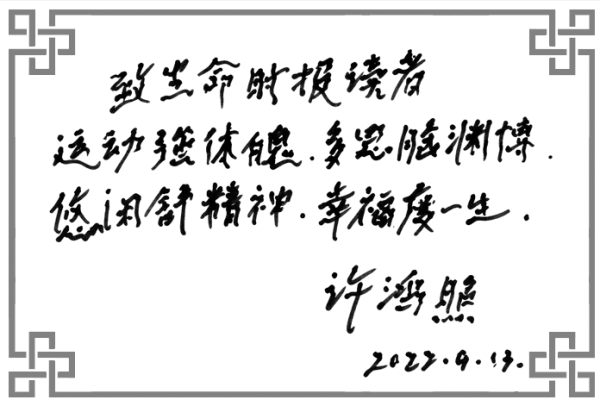 致生命时报读者
运动强体魄.多思脑渊博.
悠闲舒精神.幸福度一生.
许鸿照
2022.9.13.